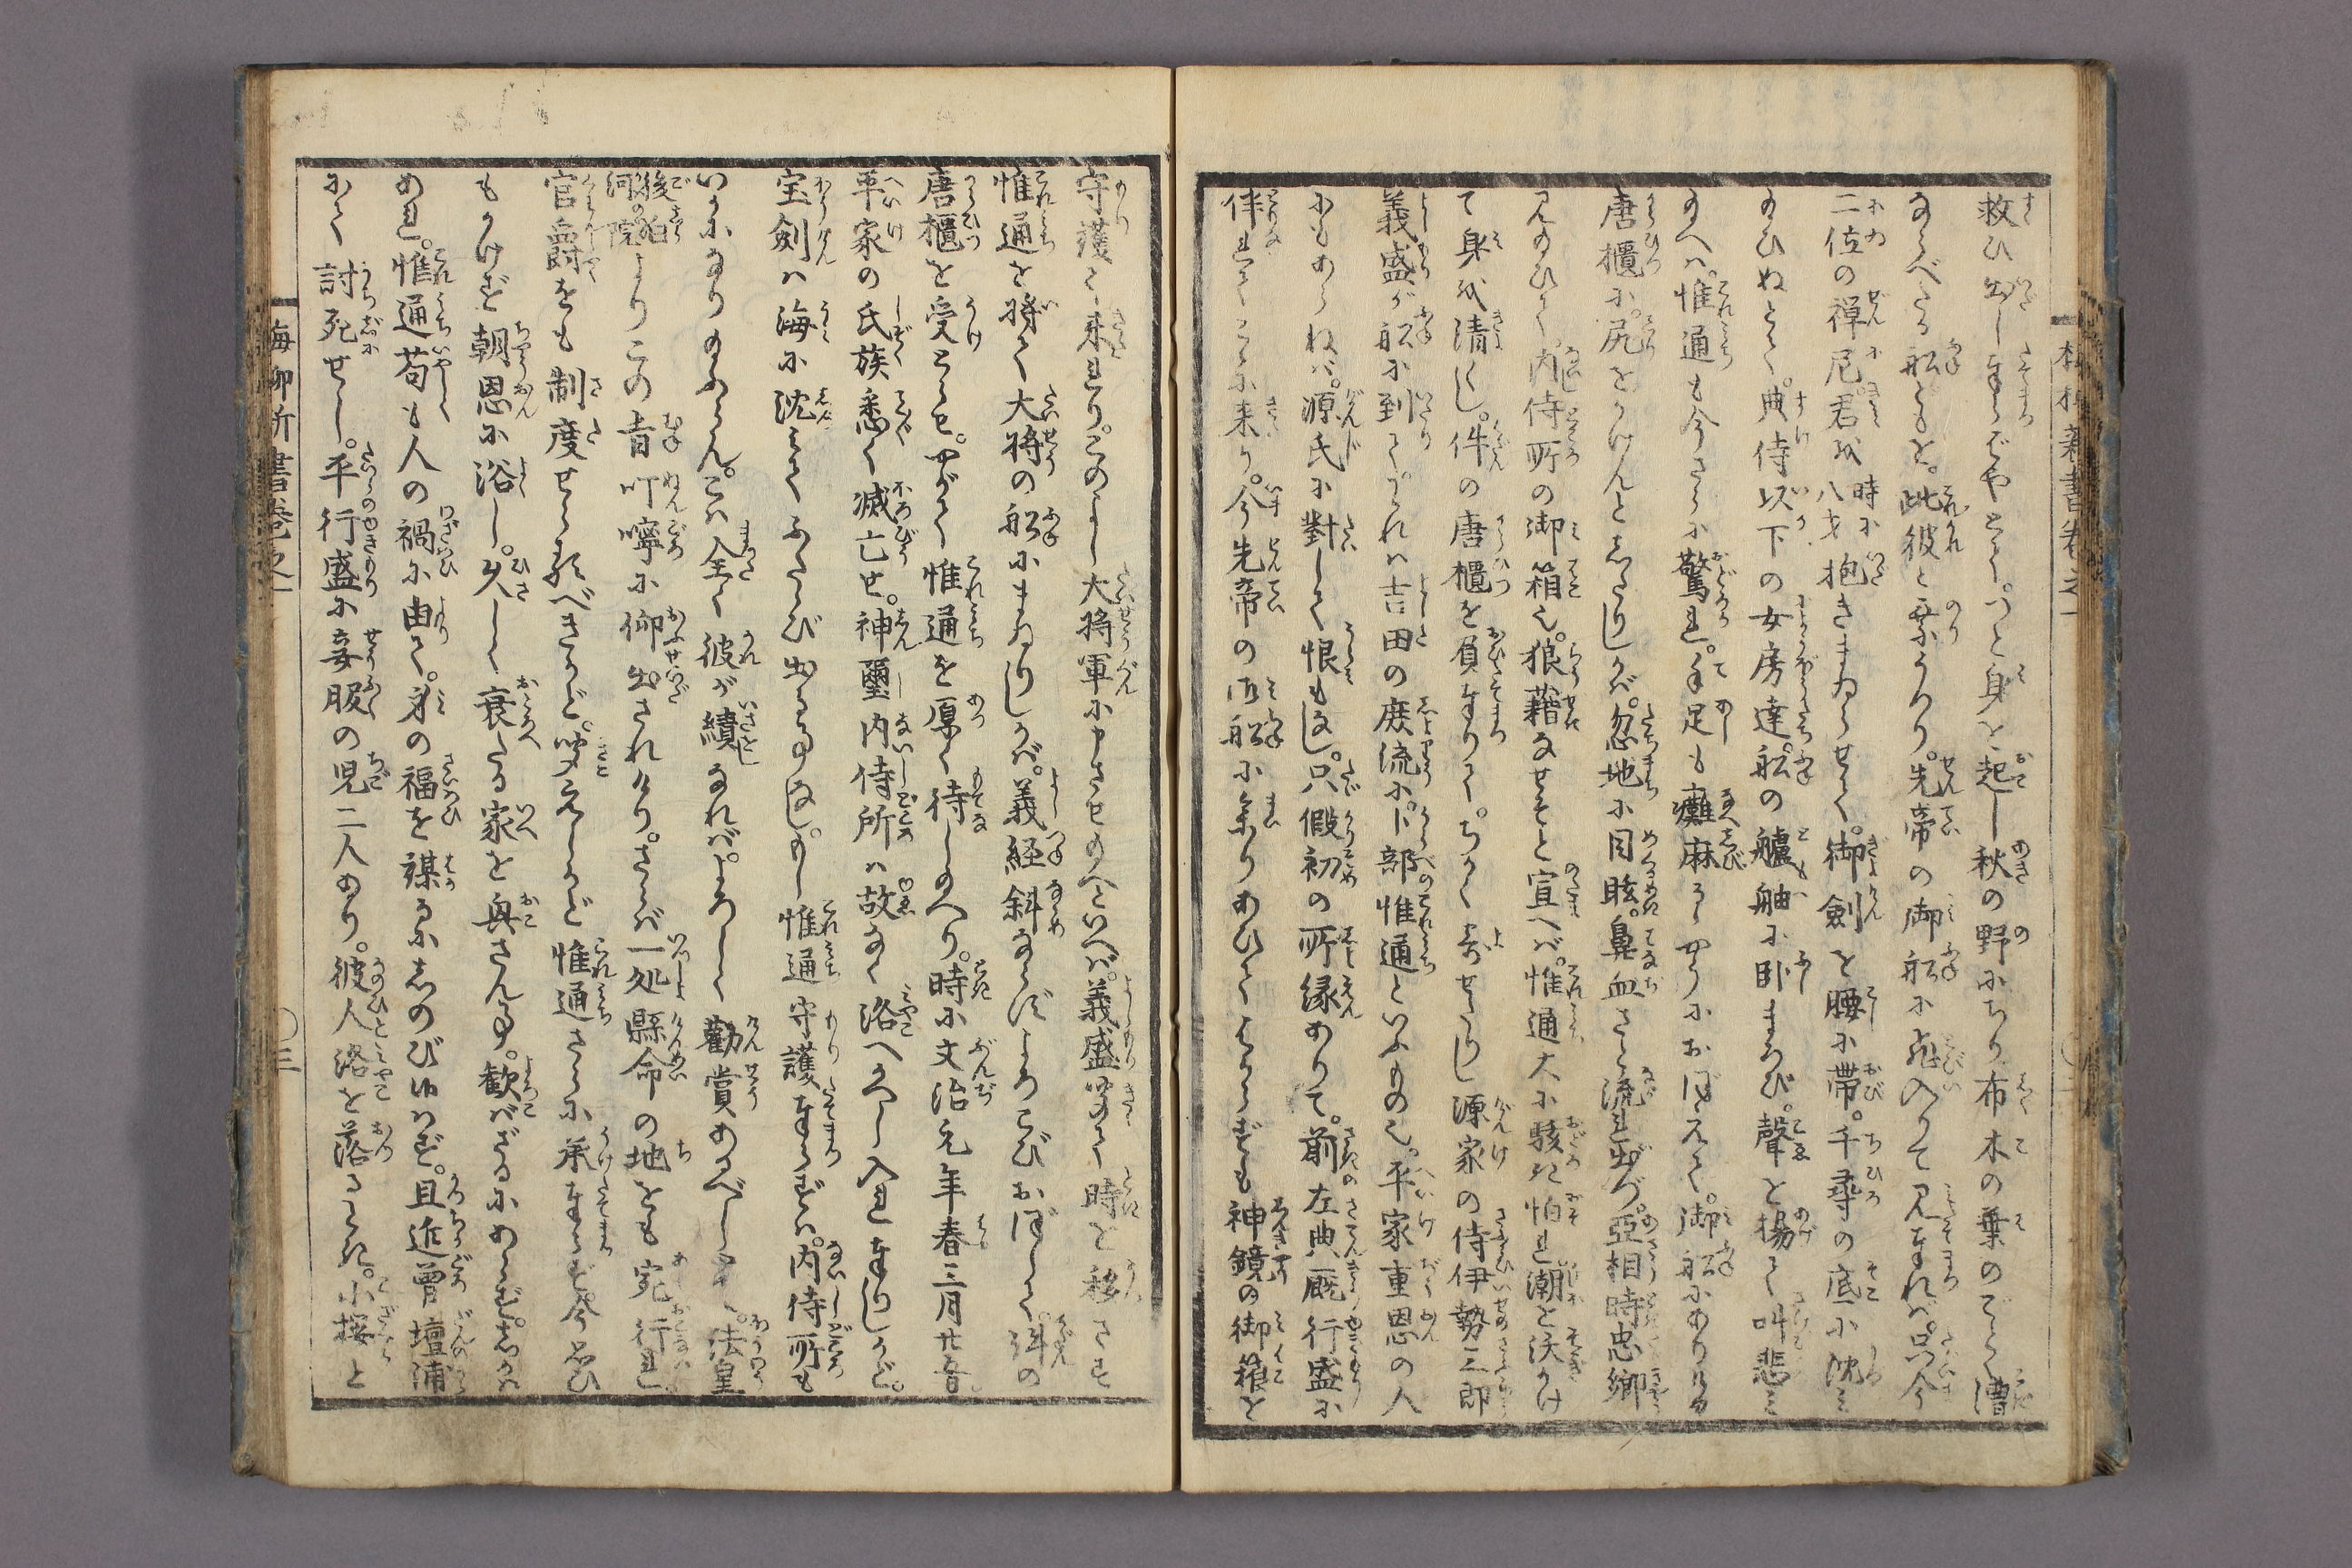 救ひ出しまゐらばやとて。つと身を起し秋の野にちり布木の葉のごとく漕
ならべたる船どもを。此彼と乗うつり。先帝の御船に飛入りて見まれば。只今
二位の禅尼。君を時に八才抱きまゐらせて。御劍を腰に帯。千尋の底に沈み
給ひぬとて。典侍以下の女房達。船の艫舳に臥まろび。聲を揚て叫悲み
給へは。惟通も今さらに驚れ。手足も癱麻るゝやうにおぼえて。御船にありける
唐櫃に。尻をかけんとしたりしかば。忽地に目眩。鼻血さと流れ出づ。亞相時忠卿
見給ひて。内侍所の御箱也。狼藉なせそと宣へば。惟通大に駭き怕れ潮を沃かけ
て身を清くし。件の唐櫃を負まゐりて。ちかく寄せたりし源家の侍伊勢三郎
義盛が船に到りて。われは吉田の庶流に。卜部惟通といふもの也。平家重恩の人
にもあらねは。源氏に對して恨もなし。只假初の所縁ありて。前左典厩行盛に
伴れてこゝに来り。今先帝の御船に参りあひてはからずも神鏡の御箱を
守護て来れり。このよし大将軍に申させ給へといへば。義盛聞て時を移さず
惟通を将て大将の船にまゐりしかば。義経斜ならずよろこびおぼして。件の
唐櫃を受とらせ。やがて惟通を厚く待し給へり。時に文治元年春三月廿
平家の氏族悉く滅亡せ。神璽内侍所は故なく洛へかへし入れまゐりしかど。
宝劍は海に沈みてふたゝび出る事なし。もし惟通守護まゐらずは。内侍所も
いかになり給ふらん。こは全く彼が績なれば。よろしく勸賞あるべし。法皇
後白河の院よりこの旨叮嚀に仰出されけり。さらば一処懸命の地をも宛行れ
官爵をも制度せらるべきかど。聞えしかど惟通さらに承まゐらず。今思ひ
もかけず朝恩に浴し。久しく衰たる家を興さん事。歓ばざるにあらず。しかは
あれ。惟通苟も人の禍に由て。身の福を禄るにしのび候はず。且近曾壇浦
にて討死せし。平行盛に妾服の児二人あり。彼人洛を落るとき。小桜と
海柳新書巻之一
〇三